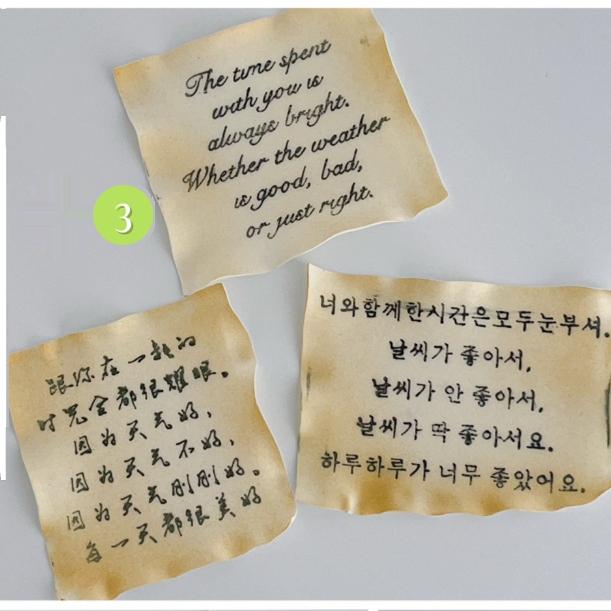 The time spent
with you is
always bright.
Whether the weather
is good, bad,
or just right.
3
너와함께한시간은모두눈부셔.
날씨가 좋아서,
날씨가 안 좋아서,
날씨가 딱 좋아서요.
하루하루가 너무 좋았어요.
跟你在一起的
时光全都很耀眼。
因为天气好,
因为天气不好,
因为天气刚刚好。
每一天都很美好